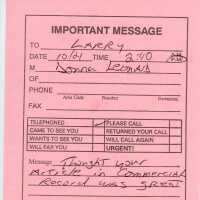 IMPORTANT MESSAGE
TO LARRY
DATE 10/21 TIME 2:40 AM PM
M Donna Leonard
OF
PHONE
Area Code Number Extension
FAX
TELEPHONED ✓ PLEASE CALL
CAME TO SEE YOU RETURNED YOUR CALL
WANTS TO SEE YOU WILL CALL AGAIN
WILL FAX YOU URGENT!
Message Thought your
Article in Commercial
Record was great